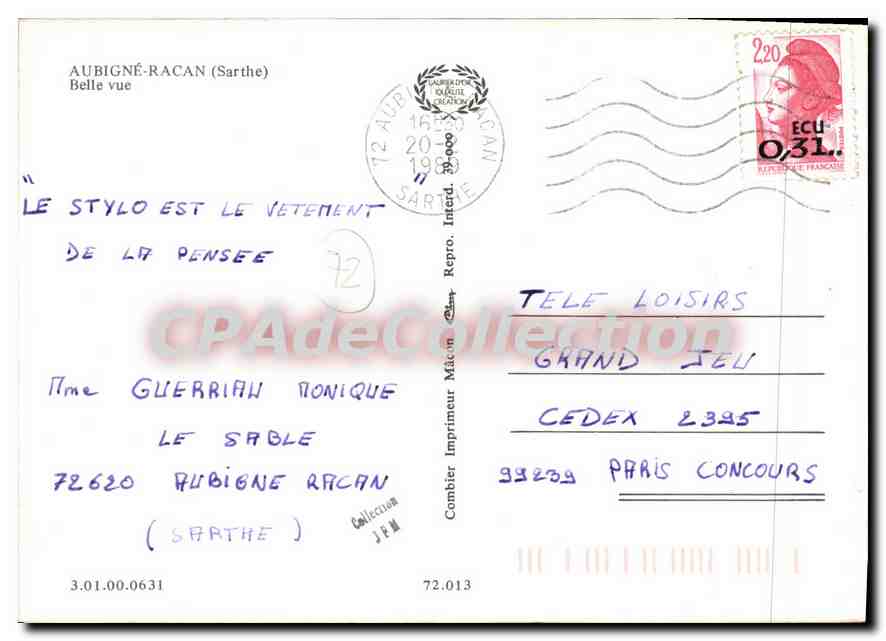 AUBIGNÉ-RACAN (Sarthe)
Belle vue
LAURIER D'OR
QUALITÉ
CRÉATION
72 AUBIGNE RACAN
20-
SARTHE
2,20
ECU
0,31..
REPUBLIQUE FRANÇAISE
"LE STYLO EST LE VETEMENT
DE LA PENSEE"
72
Mme GUERRIAU MONIQUE
LE SABLE
72620 AUBIGNE RACAN
(SARTHE)
Collection
JFM
Combier Imprimeur Mâcon Repro. Interd. 39.000 X
TELE LOISIRS
GRAND JEU
CEDEX 2395
99239 PARIS CONCOURS
CPAdeCollection
3.01.00.0631
72.013